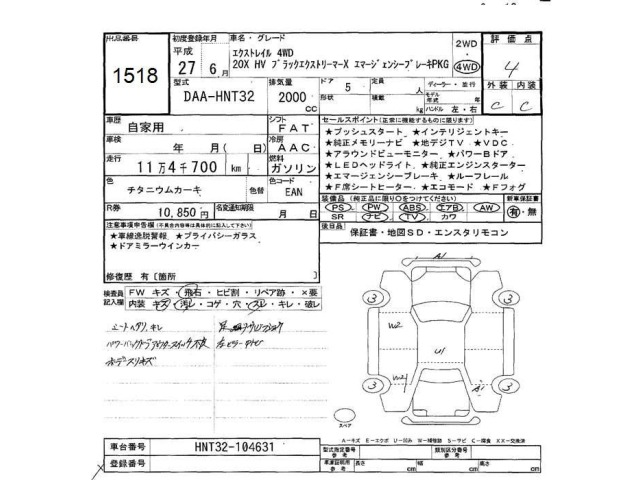 出品番号 1518
初度登録年月 平成 27年 6月
車名・グレード
エクストレイル 4WD
20X HV ブラックエクストリーマーX エマージェンシーブレーキPKG
2WD
4WD
評価点 4
外装 内装
C C
型式 DAA-HNT32
排気量 2000 CC
ドア 5
形状
定員 人
積載 kg
ディーラー・並行
モデル年式 年
ハンドル 左・右
車歴 自家用
シフト FAT
車検 年 月(日)
冷房 AAC
走行 11万4千700 km
燃料 ガソリン
色 チタニウムカーキ
色替
色コード EAN
R券 10,850円
名変通知期限 月 日
セールスポイント(正常に機能するものに限ります)
★プッシュスタート ★インテリジェントキー
★純正メモリーナビ ★地デジTV ★VDC
★アラウンドビューモニター ★パワーBドア
★LEDヘッドライト ★純正エンジンスターター
★エマージェンシーブレーキ ★ルーフレール
★F席シートヒーター ★エコモード ★Fフォグ
装備品(純正品に限り○をつけてください)
PS・PW・ABS・エアB・AW
SR ナビ・TV・カワ
新車保証書
有・無
後日品 保証書・地図SD・エンスタリモコン
注意事項申告欄(不具合内容等は具体的に記入して下さい)
★車線逸脱警報 ★プライバシーガラス
★ドアミラーウインカー
修復歴 有[箇所
検査員記入欄
FW キズ・飛石・ヒビ割・リペア跡・×要
内装 キズ・汚レ・コゲ・穴・スレ・キレ・破レ
A1
3 3
W2
U1
3 3
スペア
A-キズ E-エクボ U-凹み W-補修跡 S-サビ C-腐食 XX-交換済
車台番号 HNT32-104631
登録番号
型式指定番号 参考
類別区分番号 参考
車庫証明用 参考
長さ cm
幅 cm
高さ cm